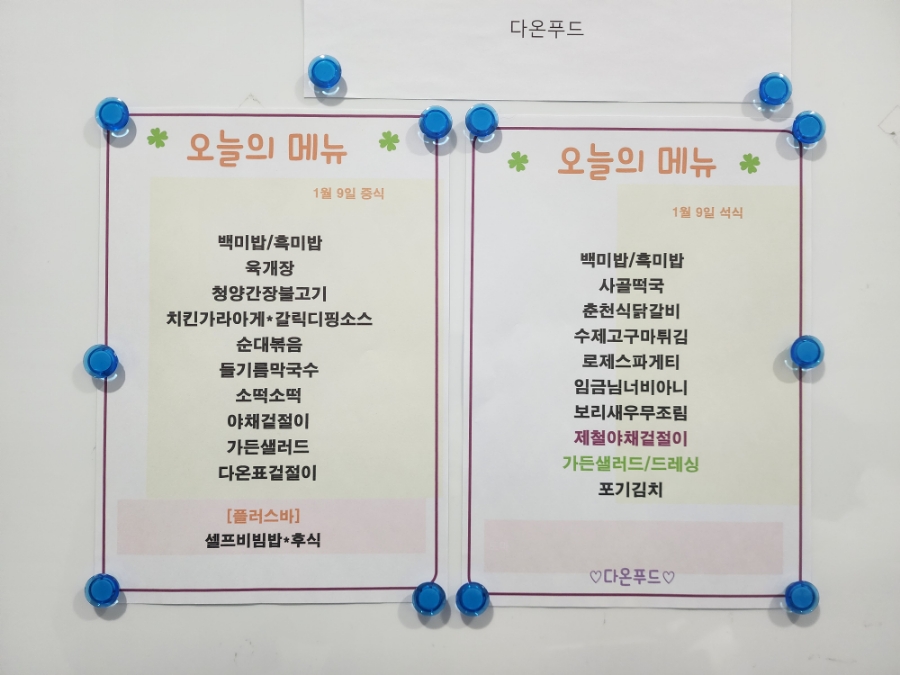 다온푸드
오늘의 메뉴
1월 9일 중식
백미밥/흑미밥
육개장
청양간장불고기
치킨가라아게*갈릭디핑소스
순대볶음
들기름막국수
소떡소떡
야채겉절이
가든샐러드
다온표겉절이
[플러스바]
셀프비빔밥*후식
오늘의 메뉴
1월 9일 석식
백미밥/흑미밥
사골떡국
춘천식닭갈비
수제고구마튀김
로제스파게티
임금님너비아니
보리새우무조림
제철야채겉절이
가든샐러드/드레싱
포기김치
♡다온푸드♡